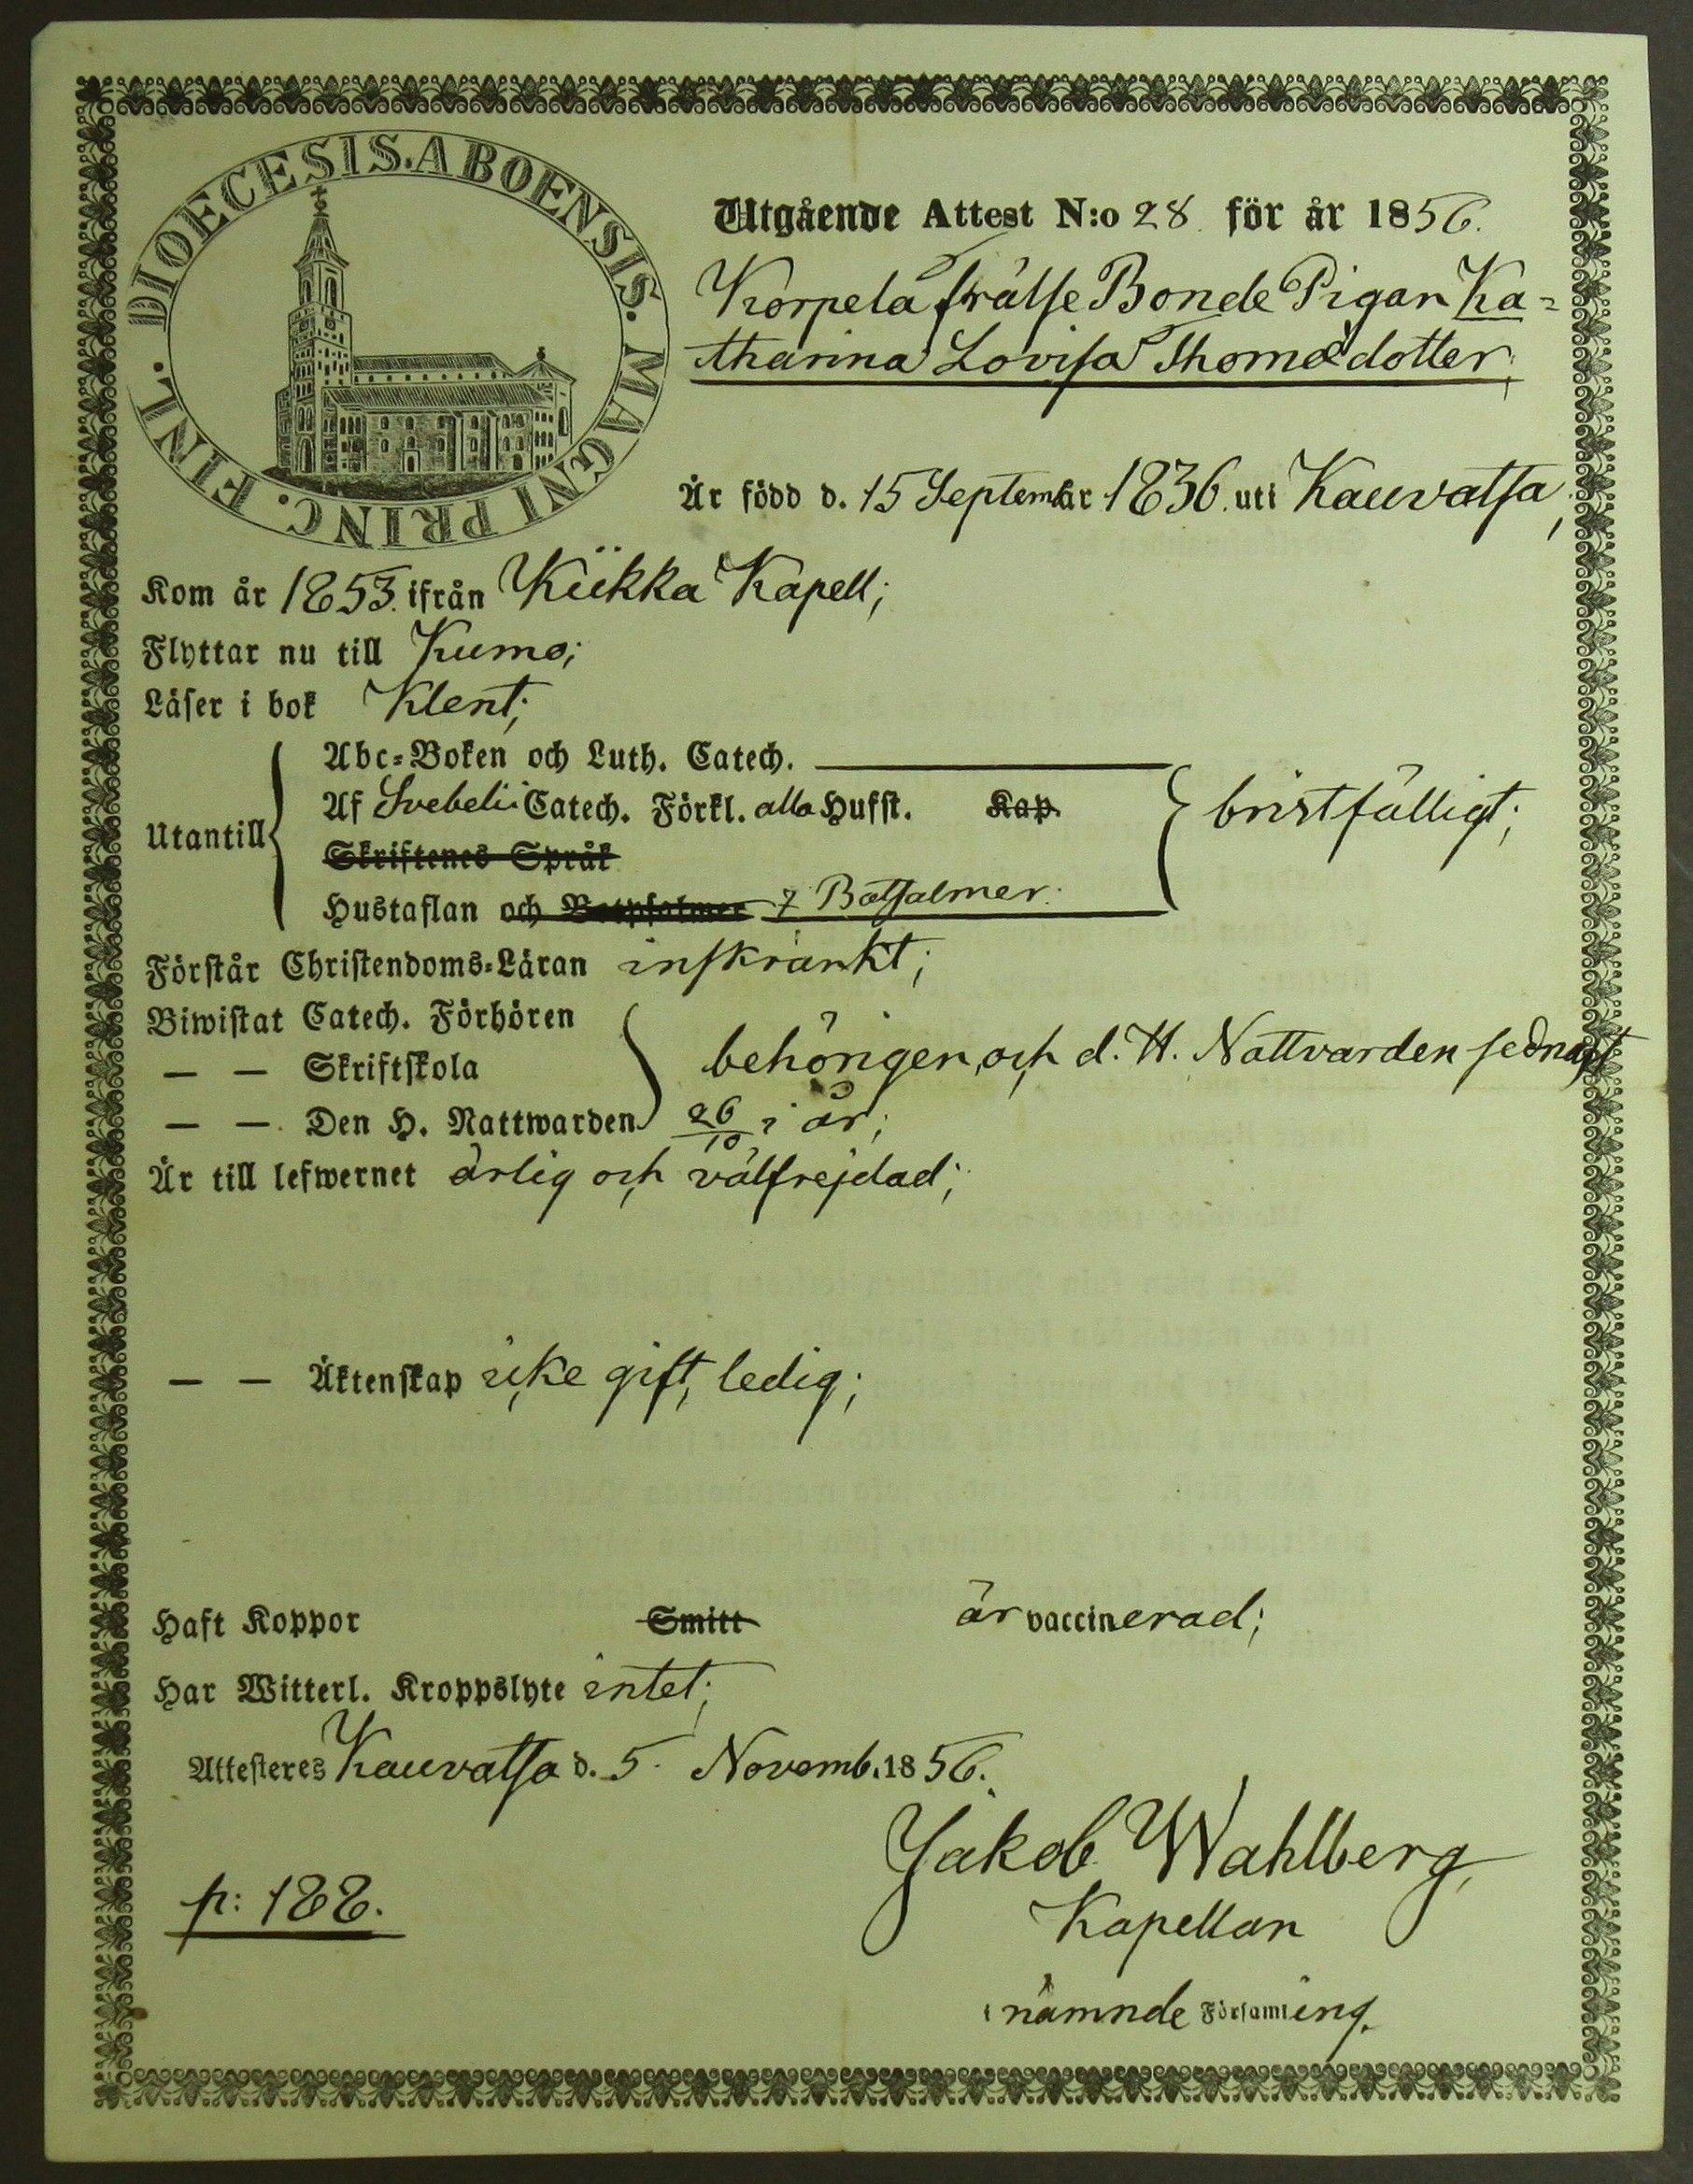 DIOECESIS.ABOENSIS. MAGNI PRINC. FINL.
Utgående Attest N:o 28. för år 1856.
Korpela frälse Bonde Pigan Ka-
tharina Lovisa Thomædotter,
Är född d. 15 September 1836. uti Kauvatsa,
Kom år 1853. ifrån Kiikka Kapell;
Flyttar nu till Kumo;
Läser i bok Klent;
Utantill
Abc-Boken och Luth. Catech.
Af Svebelii Catech. Förkl. alla Hufst. Kap.
Skriftenes Språk
Hustaflan och Botpsalmer 7 Botsalmer.
bristfälligt;
Förstår Christendoms-Läran inskränkt;
Biwistat Catech. Förhören
— — Skriftskola
— — Den H. Nattwarden
behörigen, och d. H. Nattvarden sednast
26/10 i år;
Är till lefwernet ärlig och välfrejdad;
— — Äktenskap icke gift, ledig;
Haft Koppor Smitt är vaccinerad;
Har Witterl. Kroppslyte intet;
Attesteres Kauvatsa d. 5. Novemb. 1856.
Jakob Wahlberg,
p: 188.
Kapellan
i nämnde Församling.